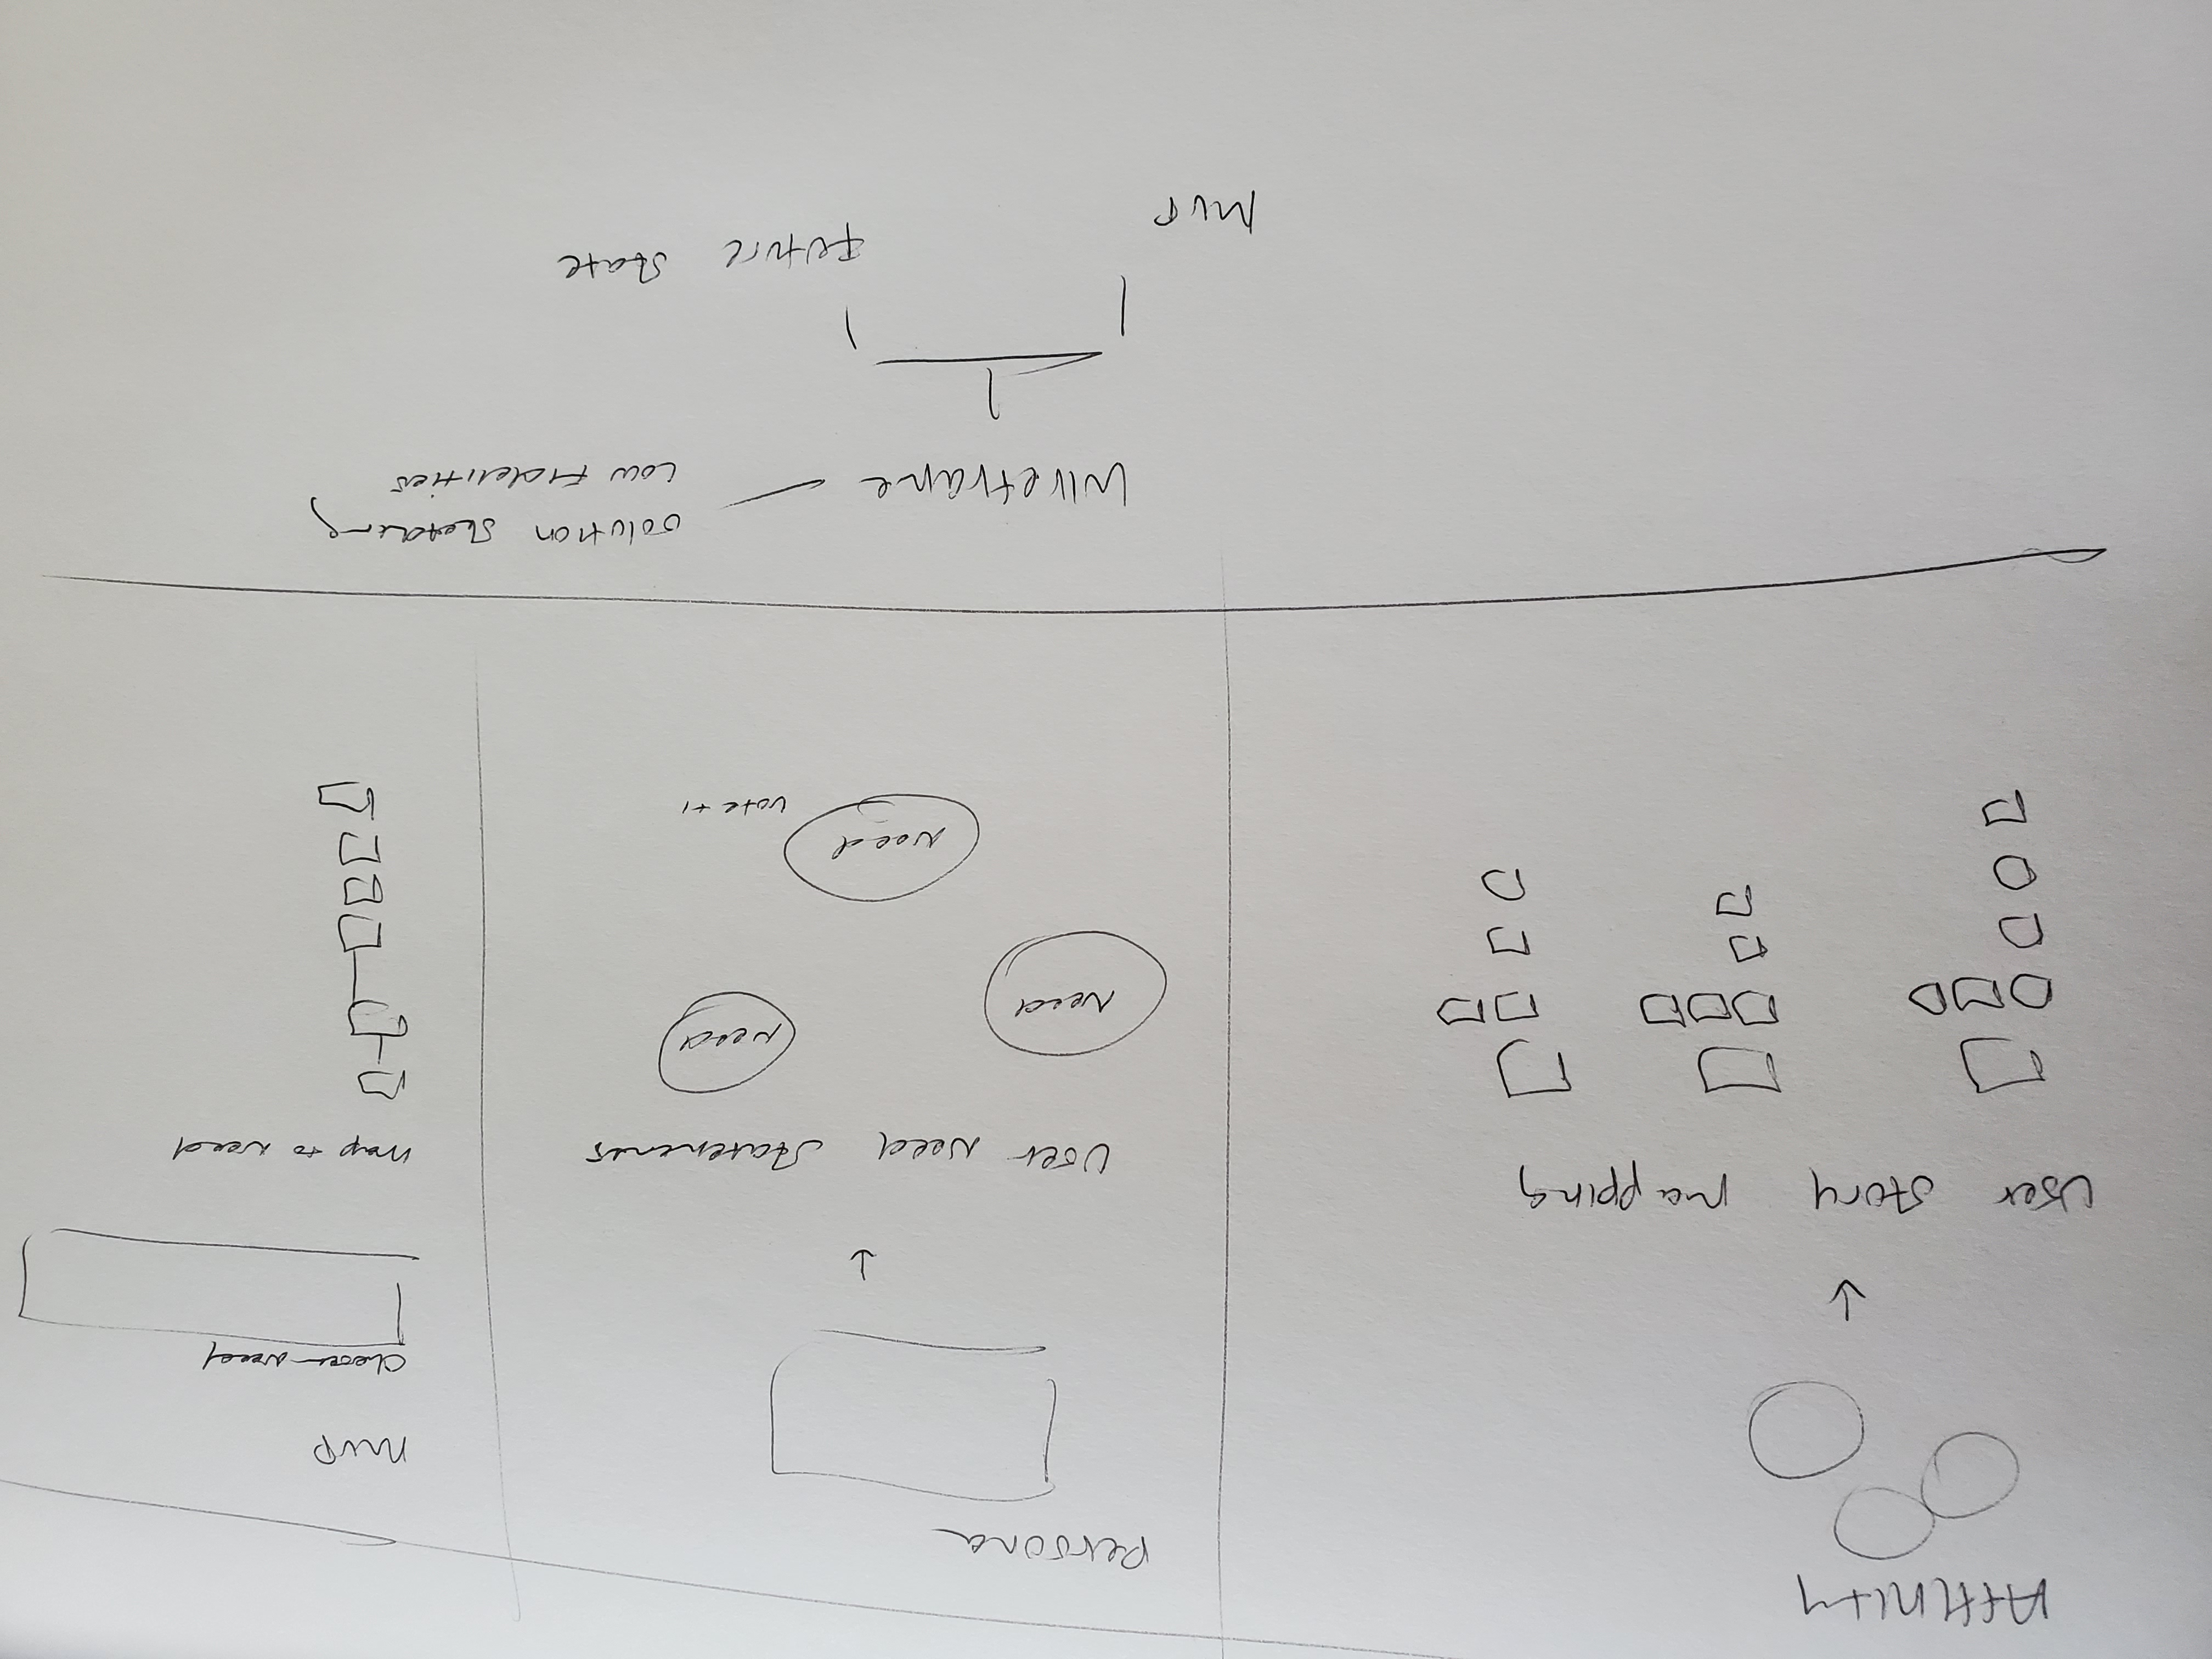 Affinity
User story mapping
Persona
User Need Statements
Need
Need
Need
vote +1
MVP
Chosen Need
map to need
Wireframe — solution sketching
Low Fidelities
MVP
future state